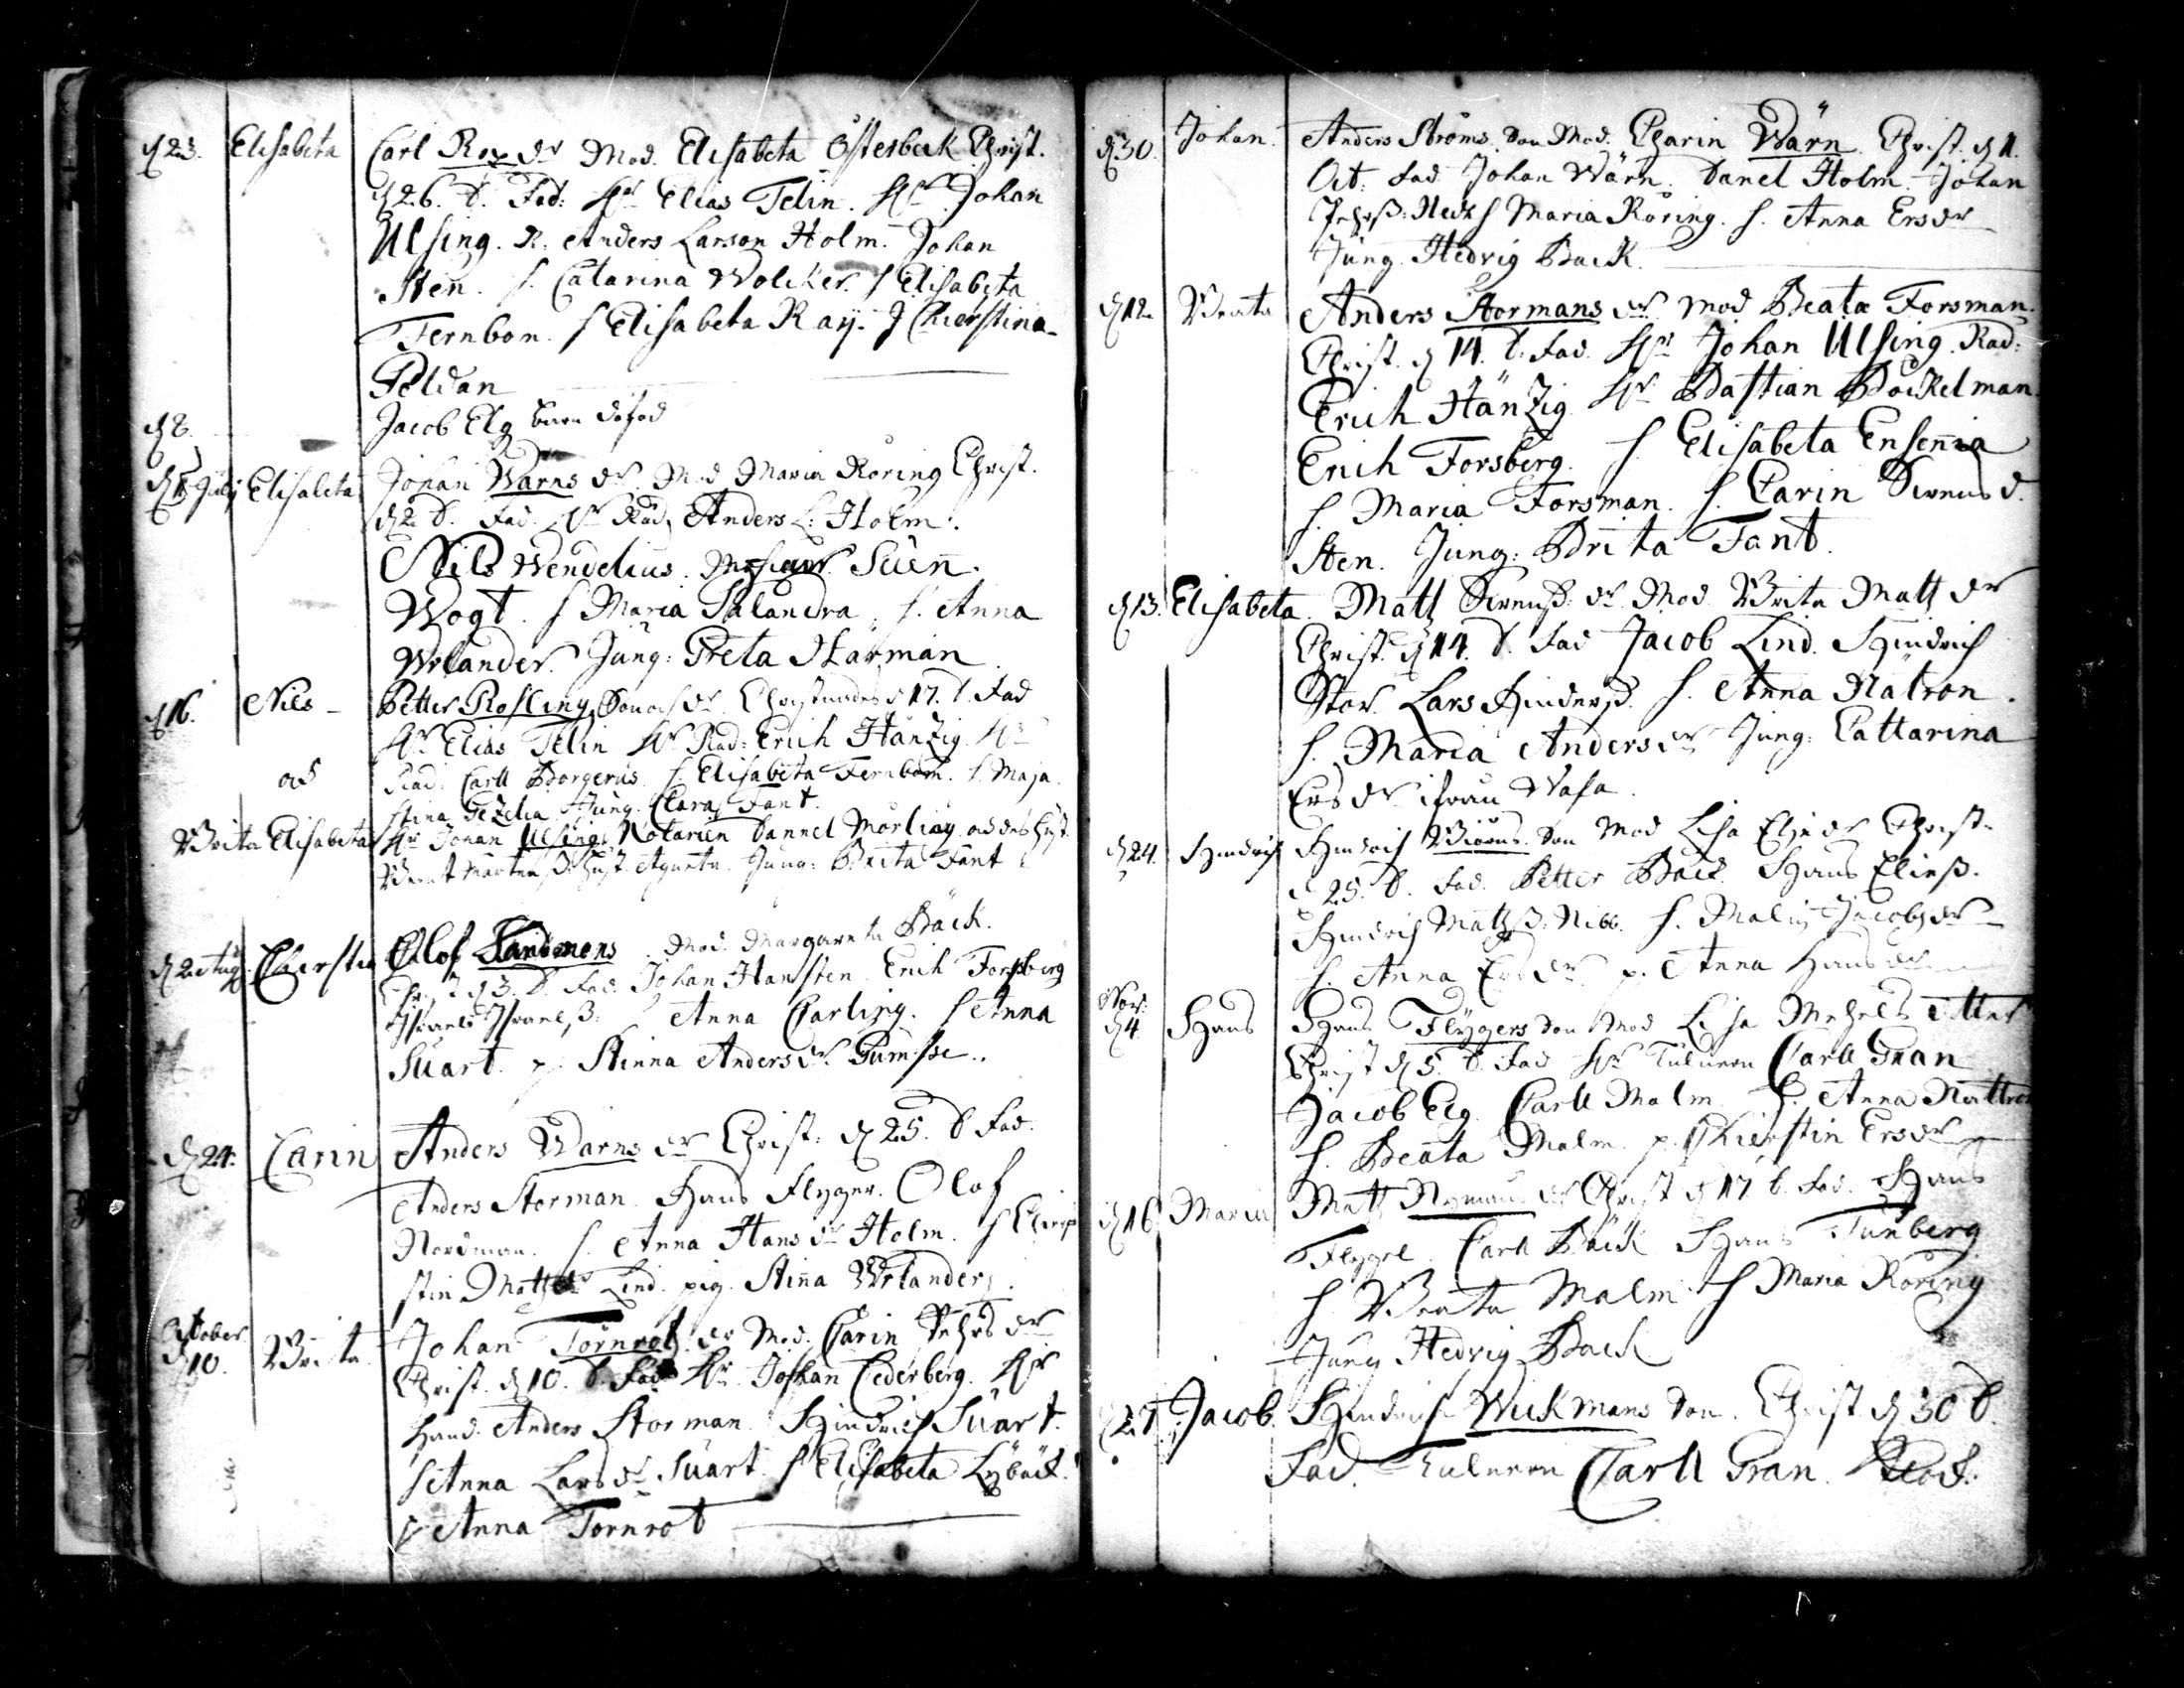 d 23. Elisabeta Carl Rex dr Mod. Elisabeta Österbeck Christ.
d 26. d. Fad: Hr Elias Telin. Hr Johan
Ulsing. R: Anders Larson Holm. Johan
Sten. h. Catarina Wolcker. h Elisabeta
Ternbon. h Elisabeta Raij. J Chierstina
Peldan
d 8. Jacob Elg barn
d 1 Julij Elisabeta Johan Warns dr. Mod Maria Röring Christ.
d 2 d. Fad. Hr Råd. Anders L: Holm.
Nils Wendelius. Suen.
Wogt. h Maria Salandra. h. Anna
Wrlander. Jung: Greta Harman.
d 16. Nils Petter Rosling Christnades d 17. d. Fad
Hr Elias Telin Hr Rad: Erich Hänzig. Hr
Rad. Carll Borgerus. h. Elisabeta Fernbom. h. Maja
stina Tezelia. Jung. Clara Fant.
och
Brita Elisabeta Hr Johan Ulsings Notarien Dannel Mörling
Jung: Brita Fant
d 2 Aug. Chierstin Olof Sandmens Mod. Margareta Bäck.
d 3. d. Fad. Johan Hansten. Erich Forsberg
Anna Carling. h Anna
Suart. p. Stinna Andersdr
d 24. Carin Anders Warns dr Christ: d 25. d Fad.
Anders Storman. Hans Flyger. Olof
Nordman. h. Anna Hans dr Holm. h Chier
stin Matzdr Lind. pig. Stina Wrlander.
October
d 10. Brita Johan Törnrots dr Mod. Carin Pehrs dr
Christ. d 10. d. Fad. Hr. Johan Cederberg. Hr
Anders Storman. Hindrich Suart.
h Anna Lars dr Suart. h Elisabeta Lybäck.
p Anna Törnrot
d 30. Johan. Anders Ströms. son Mod. Charin Wärn. Christ. d 1.
Oct: Fad Johan Wärn. Danel Holm. Johan
h Maria Röring. h. Anna Ersdr
Jung. Hedvig Back.
d 12. Beata Anders Stormans dr. Mod Beata Forsman.
Christ. d 14. d. Fad. Hr Johan Ulsing. Rad:
Erich Hänzig Hr Bastian Böckelman.
Erich Forsberg. h. Elisabeta Ensennia
h. Maria Forsman. h. Carin Svensd.
Sten. Jung: Brita Fant.
d 13. Elisabeta. Matz Svenss: dr. Mod. Brita Matz dr
Christ. d 14. d. Fad Jacob Lind. Hindrich
Stor. Lars Hinderss. h. Anna Nätron.
h. Maria Andersdr Jung: Cattarina
Ersdr ifrån Wasa.
d 24. Hindrich Hindrich Biörns. son Mod Lisa Christ.
d 25. d. Fad. Petter Bäck. Hans Eliess.
Hindrich Matzss: h. Malin Jacobsdr
h. Anna Ersdr p. Anna Hansdr
Nov:
d 4. Hans Hans Flygers son Mod Lisa
Christ d 5. d. Fad Hr Tulneren Carll Gran
Jacob Elg. Carll Malm. h. Anna Nattron
h. Beata Malm. p. Chierstin Ersdr
d 16 Maria Matz Nymans dr Christ d 17 d. Fad. Hans
Flygel. Carll Bäck Hans Tunberg
h. Beata Malm h Maria Röring
Jung Hedvig Back
Jacob. Hindrich Wickmans son. Christ d 30 d.
Fad. Tulneren Carll Gran.